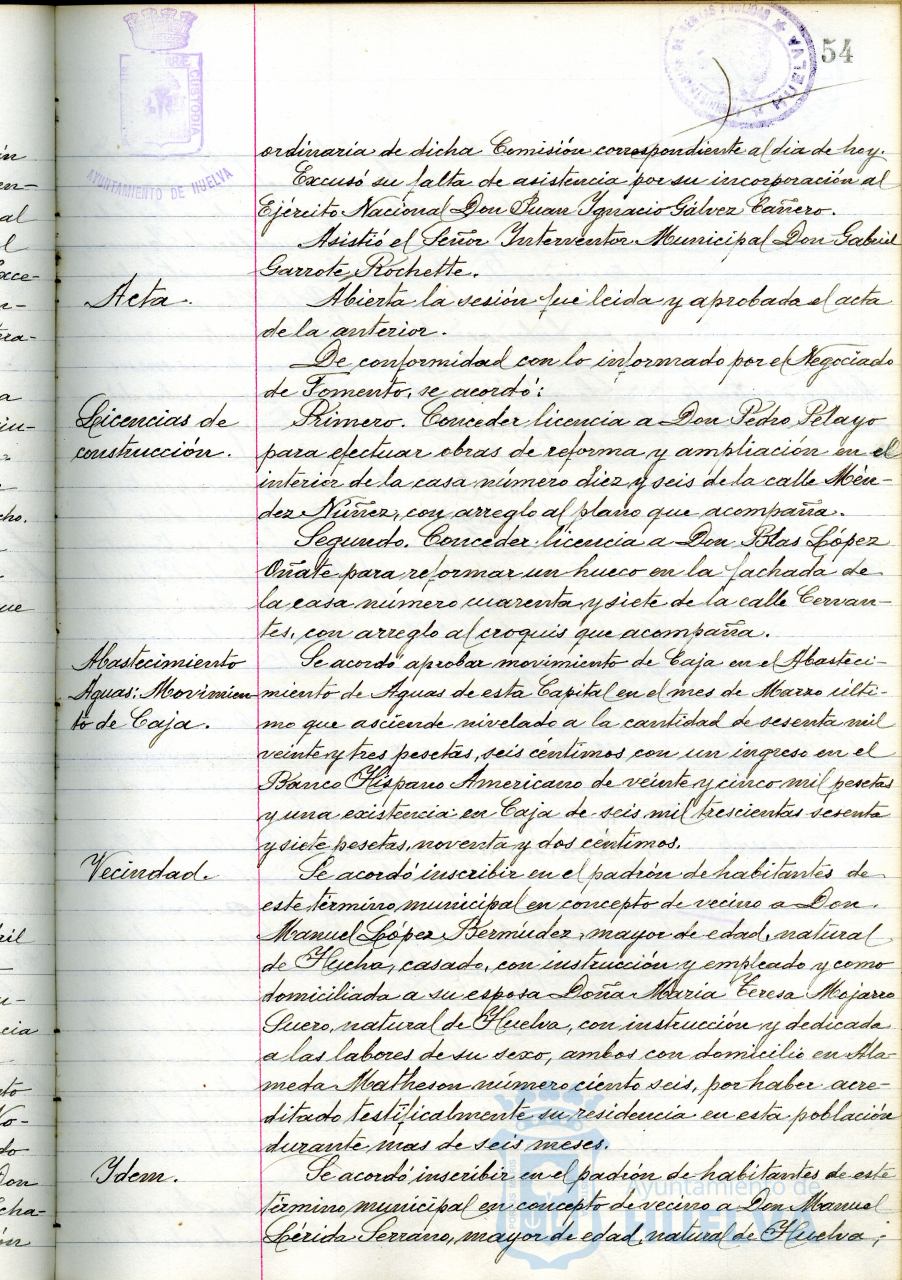 54
AYUNTAMIENTO DE HUELVA
CUSTODIA
HUELVA
ordinaria de dicha Comisión correspondiente al dia de hoy.
Excusó su falta de asistencia por su incorporación al
Ejército Nacional Don Juan Ignacio Gálvez Cañero.
Asistió el Señor Interventor Municipal Don Gabriel
Garrote Rochette.
Acta.
Abierta la sesión fué leida y aprobada el acta
de la anterior.
De conformidad con lo informado por el Negociado
de Fomento, se acordó:
Licencias de
construcción.
Primero. Conceder licencia a Don Pedro Pelayo
para efectuar obras de reforma y ampliación en el
interior de la casa número diez y seis de la calle Mén-
dez Núñez, con arreglo al plano que acompaña.
Segundo. Conceder licencia a Don Blas López
Oñate para reformar un hueco en la fachada de
la casa número cuarenta y siete de la calle Cervan-
tes, con arreglo al croquis que acompaña.
Abastecimiento
Aguas: Movimien
to de Caja.
Se acordó aprobar movimiento de Caja en el Abasteci-
miento de Aguas de esta Capital en el mes de Marzo últi-
mo que asciende nivelado a la cantidad de sesenta mil
veinte y tres pesetas, seis céntimos con un ingreso en el
Banco Hispano Americano de veinte y cinco mil pesetas
y una existencia en Caja de seis mil trescientas sesenta
y siete pesetas, noventa y dos céntimos.
Vecindad.
Se acordó inscribir en el padrón de habitantes de
este término municipal en concepto de vecino a Don
Manuel López Bermúdez, mayor de edad, natural
de Huelva, casado, con instrucción y empleado y como
domiciliada a su esposa Doña Maria Teresa Mojarro
Suero, natural de Huelva, con instrucción y dedicada
a las labores de su sexo, ambos con domicilio en Ala-
meda Matheson número ciento seis, por haber acre-
ditado testificalmente su residencia en esta población
durante mas de seis meses.
Ydem.
Se acordó inscribir en el padrón de habitantes de este
término municipal en concepto de vecino a Don Manuel
Lérida Serrano, mayor de edad, natural de Huelva,
Ayuntamiento de
HUELVA